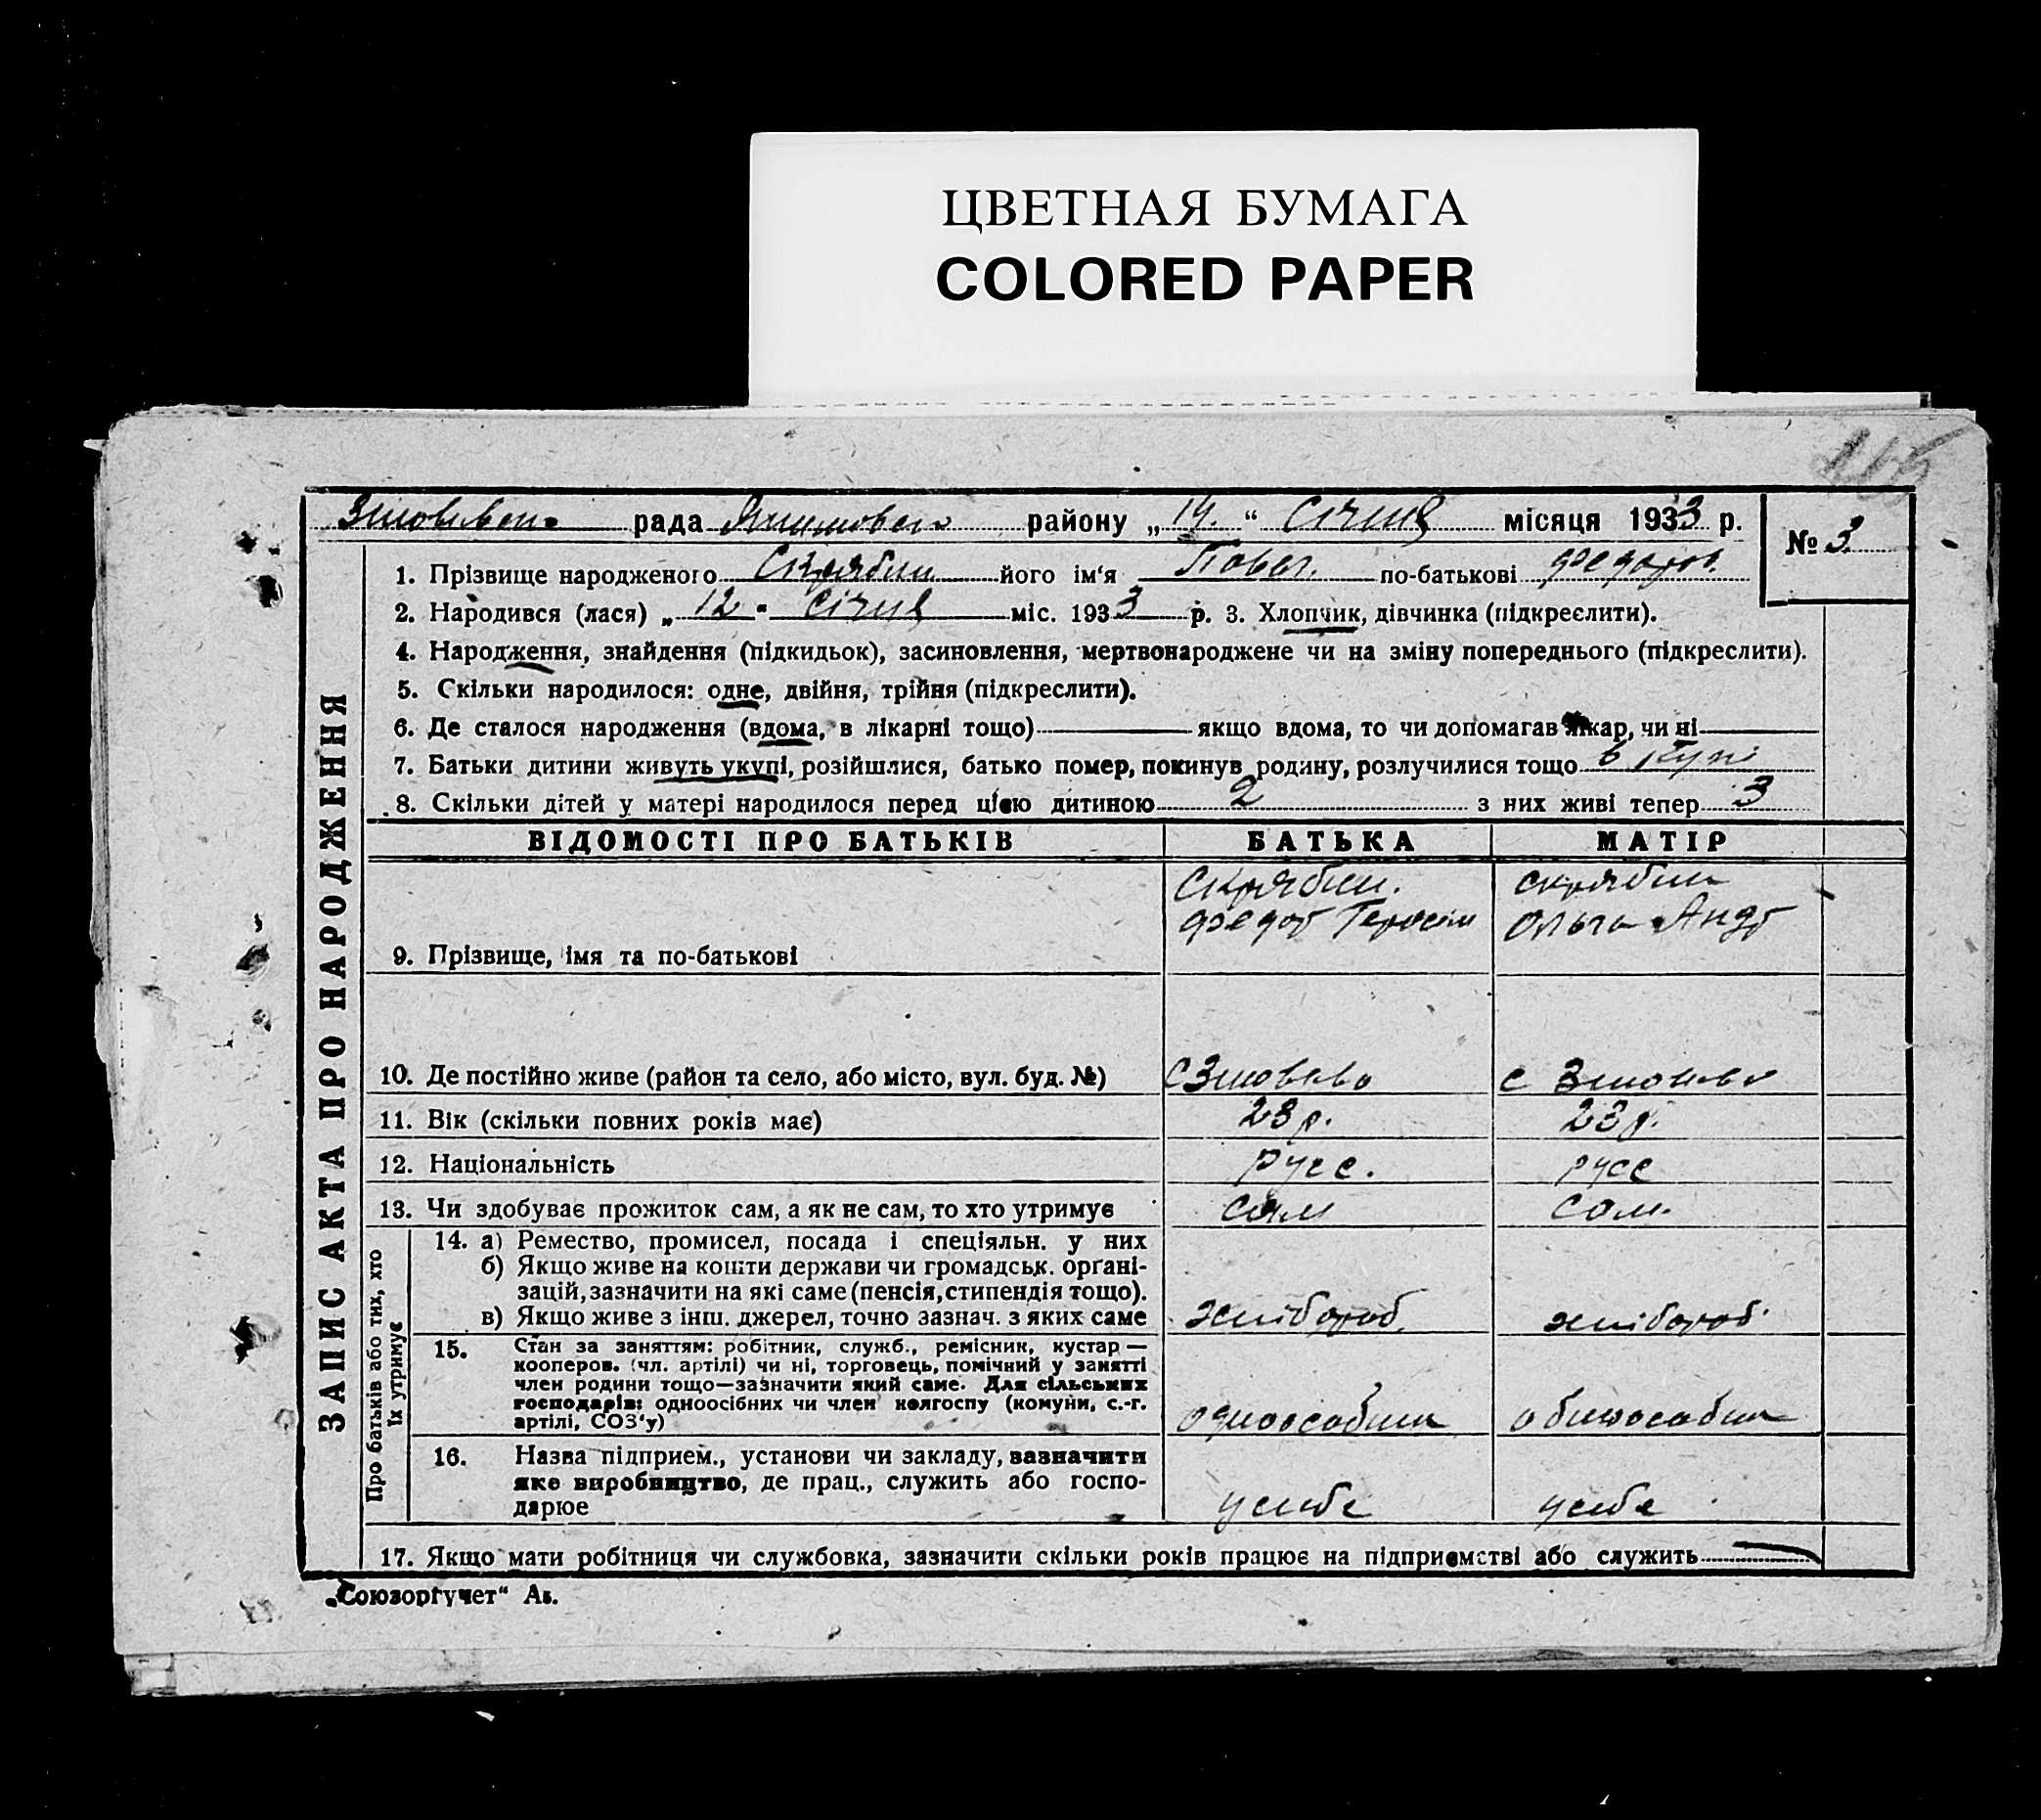 ЦВЕТНАЯ БУМАГА
COLORED PAPER
рада района району „14.“ Січня місяця 1933 р.
№ 3
ЗАПИС АКТА ПРО НАРОДЖЕННЯ
1. Прізвище народженого Скрябин його ім‘я Павел. по-батькові Федоров.
2. Народився (лася) „12" січня міс. 1933 р. 3. Хлопчик, дівчинка (підкреєлити).
4. Народження, знайдення (підкидьок), засиновлення, мертвонароджене чи на зміну попереднього (підкреслити).
5. Скільки народилося: одне, двійня, трійня (підкреслити).
6. Де сталося народження (вдома, в лікарні тощо) якщо вдома, то чи допомагав лікар, чи ні
7. Батьки дитини живуть укупі, розійшлися, батько помер, покинув родину, розлучилися тощо в купі
8. Скільки дітей у матері народилося перед цією дитиною 2 з них живі тепер 3
ВІДОМОСТІ ПРО БАТЬКІВ БАТЬКА МАТІР
Скрябин. скрябин
Федор Герасим Ольга Андр
9. Прізвище, імя та по-батькові
10. Де постійно живе (район та село, або місто, вул. буд. №) с с
11. Вік (скільки повних років має) 23 р. 23 р.
12. Національність Русс. русс
13. Чи здобуває прожиток сам, а як не сам, то хто утримує сам сам.
Про батьків або тих, хто їх утримує
14. а) Ремество, промисел, посада і спеціяльн. у них
б) Якщо живе на кошти держави чи громадськ. орґані-
зацій, зазначити на які саме (пенсія, стипендія тощо).
в) Якщо живе з інш. джерел, точно зазнач. з яких саме хлібороб. хлібороб.
15. Стан за заняттям: робітник, служб., ремісник, кустар —
кооперов. (чл. артілі) чи ні, торговець, помічний у занятті
член родини тощо—зазначити який саме. Для сільських
господарів: одноосібних чи член колгоспу (комуни, с.-г.
артілі, СОЗ‘у) одноособник
16. Назва підприєм., установи чи закладу, зазначити
яке виробництво, де прац., служить або госпо-
дарює у себе у себе
17. Якщо мати робітниця чи службовка, зазначити скільки років працює на підприємстві або служить
„Союзоргучет“ Ав.